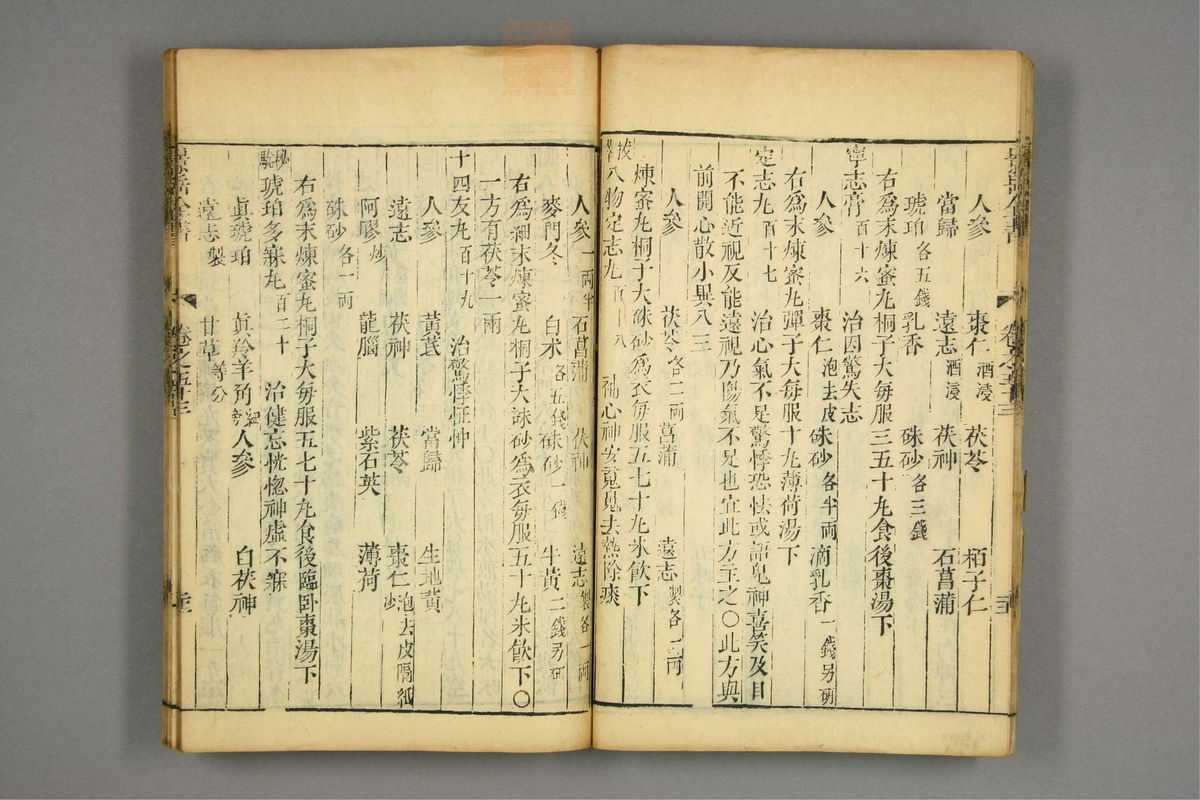 景岳全書
卷之五十三
人參 棗仁酒浸 茯苓 栢子仁
當歸 遠志酒浸 茯神 石菖蒲
琥珀各五錢 乳香 硃砂各三錢
右爲末煉蜜丸桐子大每服三五十丸食後棗湯下
寧志膏百十六 治因驚失志
人參 棗仁泡去皮 硃砂各半兩 滴乳香一錢另研
右爲末煉蜜丸彈子大每服十丸薄荷湯下
定志丸百十七 治心氣不足驚悸恐怯或語鬼神喜笑及目
不能近視反能遠視乃陽氣不足也宜此方主之○此方與
前開心散小異八三
人參 茯苓各二兩 菖蒲 遠志製各一兩
煉蜜丸桐子大硃砂爲衣每服五七十丸米飲下
八物定志丸百十八 補心神安䰟魄去熱除痰
人參一兩半 石菖蒲 茯神 遠志製各一兩
麥門冬 白朮各五錢 硃砂一錢 牛黃二錢另研
右爲細末煉蜜丸桐子大硃砂爲衣每服五十丸米飲下○
一方有茯苓一兩
十四友丸百十九 治驚悸怔忡
人參 黃芪 當歸 生地黃
遠志 茯神 茯苓 棗仁泡去皮隔紙炒
阿膠炒 龍腦 紫石英 薄荷
硃砂各一兩
右爲末煉蜜丸桐子大每服五七十丸食後臨卧棗湯下
秘驗琥珀多寐丸百二十 治健忘恍惚神虛不寐
眞琥珀 眞羚羊角 人參 白茯神
遠志製 甘草等分
景岳全書
卷之五十三